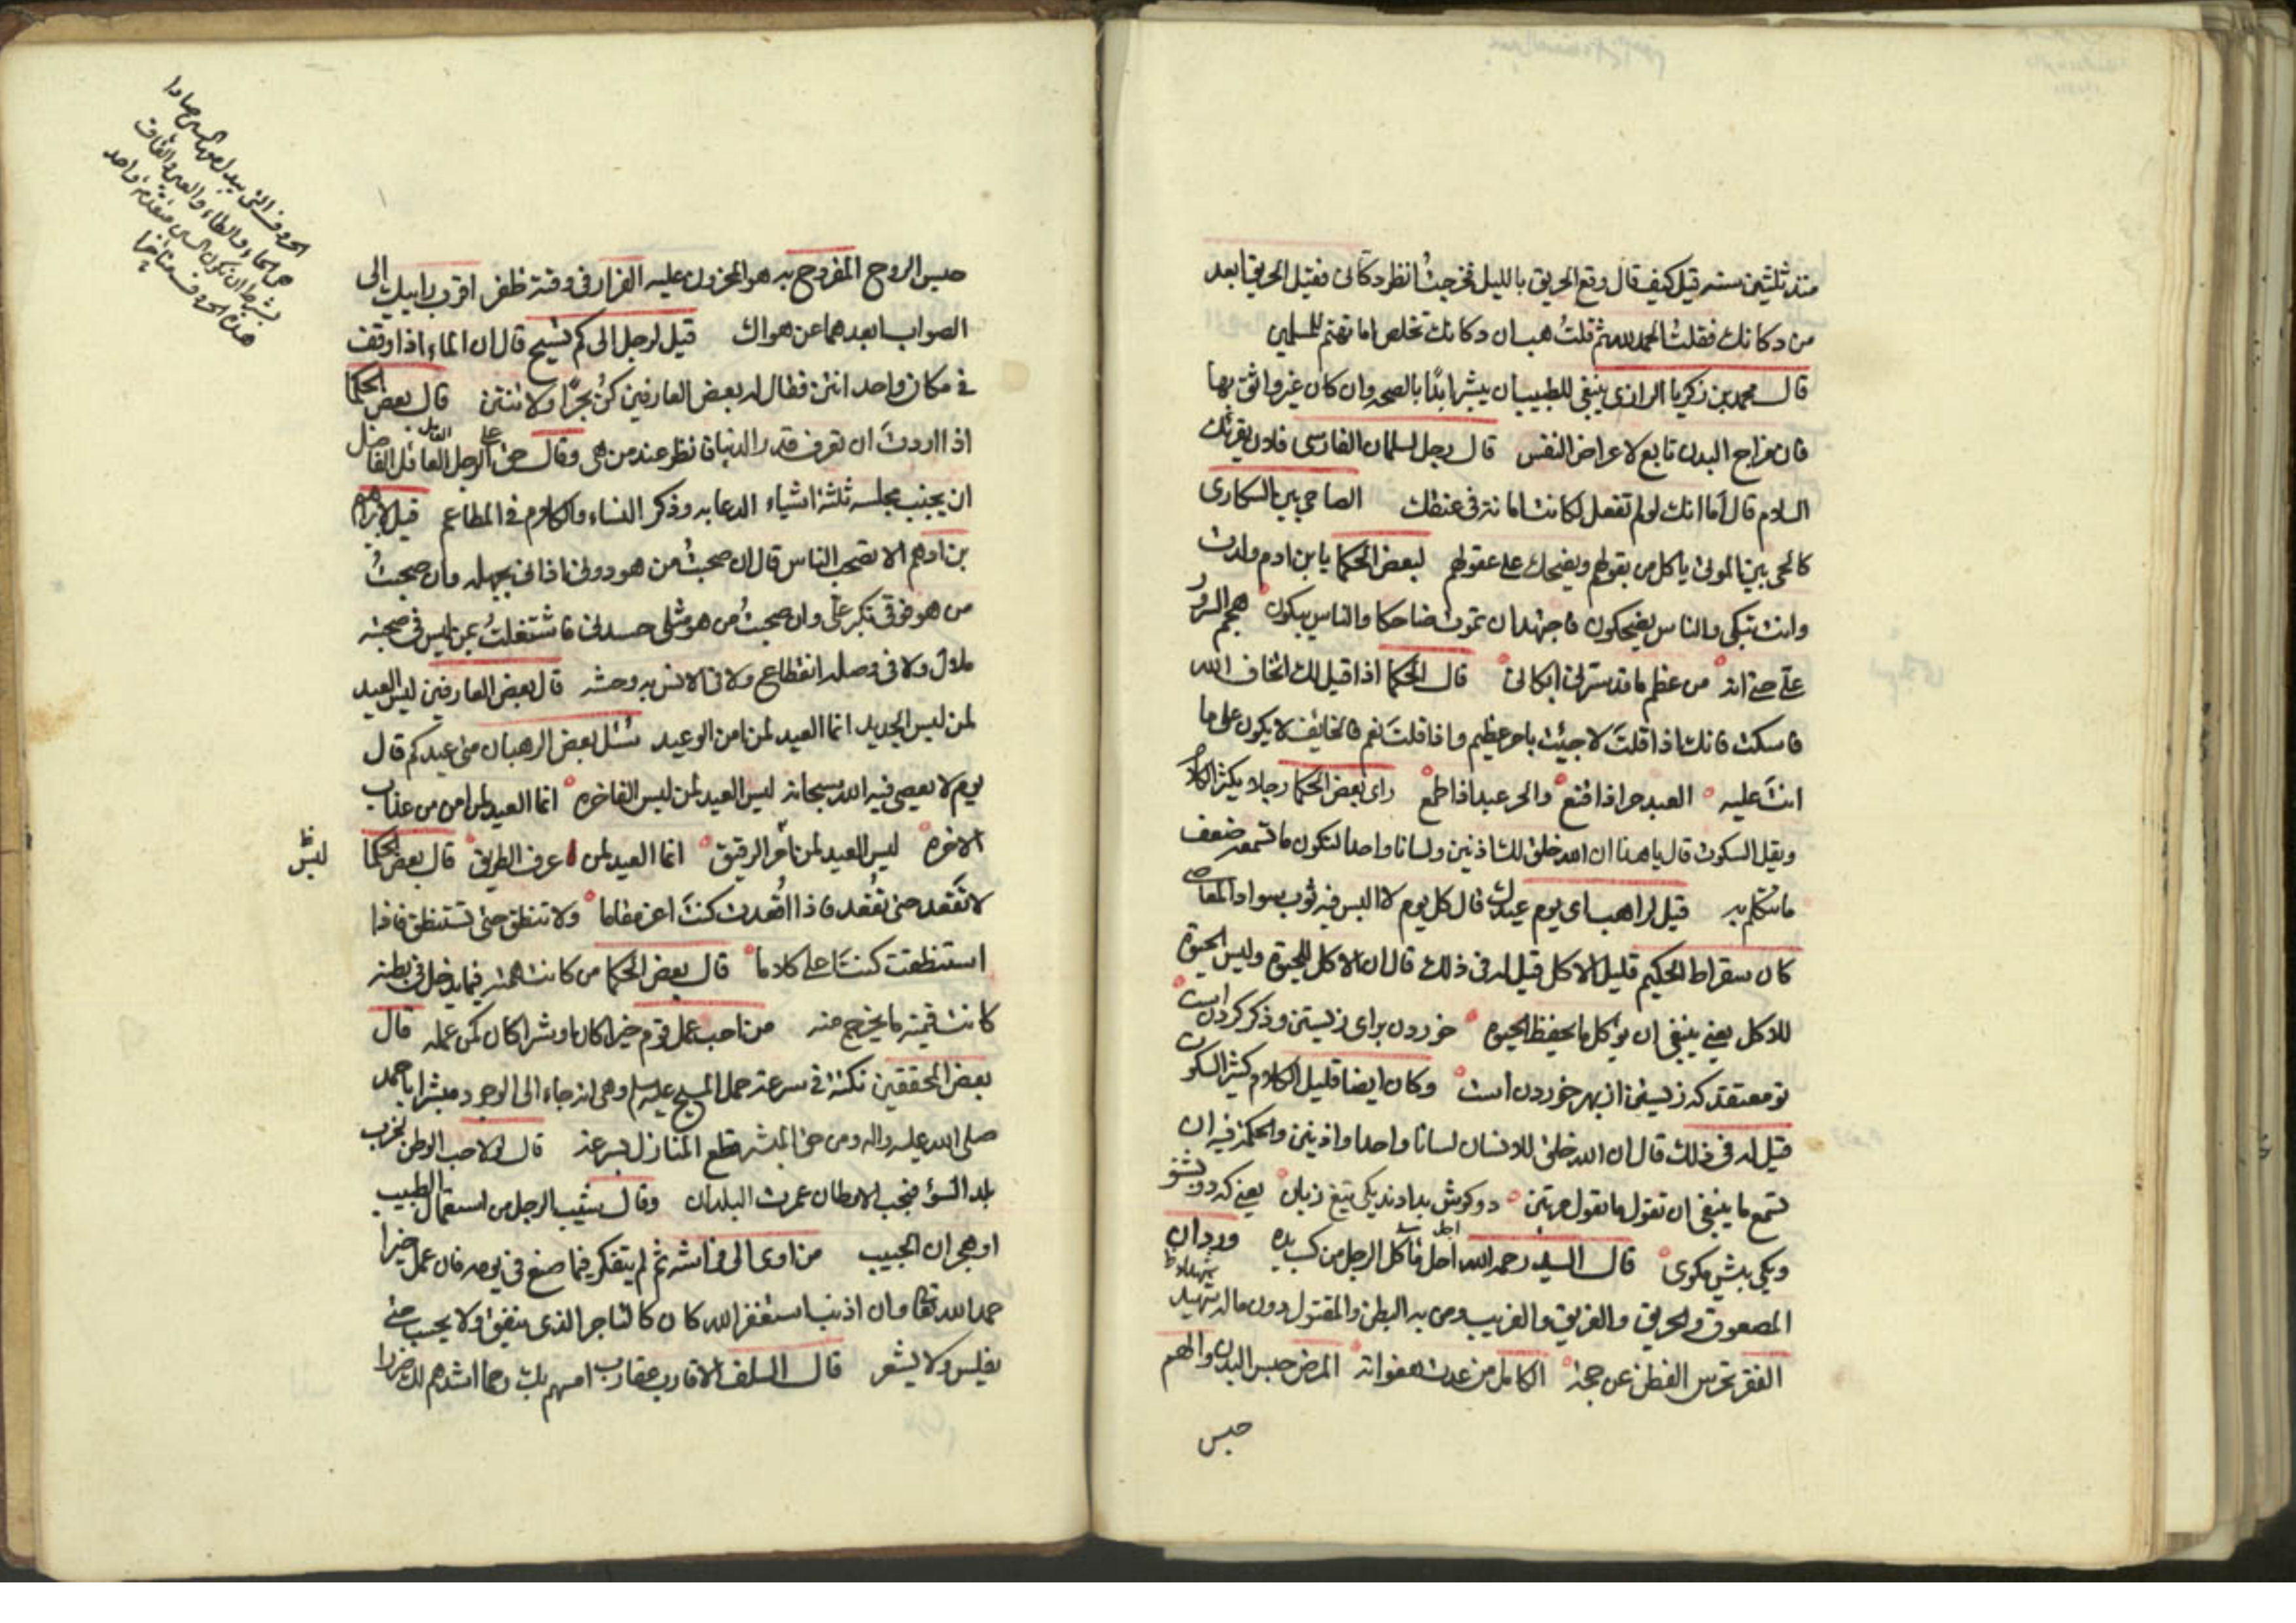 منذ ثلثين سنه قيل كيف قال وقع الحريق بالليل فخرجتُ انظر دكانى فقيل الحريق ابعد
من دكانك فقلتُ الحمد لله ثم قلتُ هب ان دكانك تخلص اما تهتم للمسلمين
قال محمد بن زكريا الرازى ينبغى للطبيب ان يبشر ابدًا بالصحه وان كان غير واثق بها
فان مزاج البدن تابع لاعراض النفس قال رجل لسلمان الفارسى فلان يقرئك
السلام قال أما انك لو لم تفعل لكانت امانة فى عنقك الصاحى بين السكارى
كالحى بين الموتى ياكل من بقولهم ويضحك على عقولهم لبعض الحكما يا بن ادم ولدت
وانت تبكى والناس يضحكون فاجتهد ان تموت ضاحكا والناس يبكون هجم السرورُ
علىّ حتى انه من عظم ما قد سرّنى ابكانى قال الحكما اذا قيل لك اتخاف الله
فاسكت فانك اذا قلتَ لا جيئت بامر عظيم واذا قلتَ نعم فالخائف لا يكون على ما
انتَ عليه العبد حر اذا قنع والحر عبد اذا طمع راى بعض الحكما رجلا يكثر الكلام
ويقل السكوت قال يا هذا ان الله خلق لك اذنين ولسانا واحدا لتكون ما تسمعه ضعف
ما تتكلم به قيل لراهب اى يوم عيدك قال كل يوم لا البس فيه ثوب سواد المعاصى
كان سقراط الحكيم قليل الاكل قيل له فى ذلك قال ان الاكل للحيوة وليس الحيوة
للاكل يعنى ينبغى ان يؤكل ما يحفظ الحيوة خوردن براى زيستن وذكر كردن است
تو معتقد كه زيستن از بهر خوردن است وكان ايضا قليل الكلام كثير السكوت
قيل له فى ذلك قال ان الله خلق للانسان لسانا واحدا واذنين والحكمة فيه ان
تسمع ما ينبغى ان تقول ما تقول مرتين دو كوش بدادند يكى تيغ زبان يعنى كه دو بشنو
ويكى بيش مكوى قال السيد رحمه الله احل ما اكل الرجل من كسب يده وردان
المصعوق والحريق والغريق والغريب ومن به البطن والمقتول دون ماله شهيد
الفقر يخرس الفطن عن حجته الكامل من عدت هفواته المرض حبس البدن والهم
حبس
حبس الروح المفروح به هو المحزون عليه الفرار فى وقته ظفر اقرب رأييك الى
الصواب ابعدهما عن هواك قيل لرجل الى كم تسيح قال ان الماء اذا وقف
فى مكان واحد انتن فقال له بعض العارفين كُن بحرًا ولا تنتن قال بعض الحكما
اذا اردتَ ان تعرف قدر الدنيا فانظر عند من هى وقال حق على الرجل العاقل الفاضل
ان يجنب مجلسه ثلثة اشياء الدعابه وذكر النساء والكلام فى المطاعم قيل لابراهيم
بن ادهم الا تصحب الناس قال ان صحبتُ من هو دونى اذانى بجهله وان صحبتُ
من هو فوقى تكبر علىّ وان صحبتُ من هو مثلى حسدنى فاشتغلتُ بمن ليس فى صحبته
ملال ولا فى وصله انقطاع ولا فى الانس به وحشه قال بعض العارفين ليس العيد
لمن لبس الجديد انما العيد لمن امن الوعيد سُئل بعض الرهبان متى عيدكم قال
يوم لا يعصى فيه الله سبحانه ليس العيد لمن لبس الفاخره انما العيد لمن امن من عذاب
الاخره ليس العيد لمن الرقيق انما العيد لمن عرف الطريق قال بعض الحكما
لا تَقعُد حتى تُقعَد فاذا اقعدت كنتَ اعز مقاما ولا تنطق حتى تستنطق فاذا
استنطقت كنتَ اعلى كلاما قال بعض الحكما من كانت همته فيما يدخل فى بطنه
كانت قيمته ما يخرج منه من احب عمل قوم خيرا كان او شرا كان كمن عمله قال
بعض المحققين نكتة فى سرعة حمل المسيح عليه سلم وهى انه جاء الى الوجود مبشرا باحمد
صلى الله عليه واله ومن حق المبشر قطع المنازل بسرعة قال لولا حب الوطن لخرب
بلد السوء فبحب الاوطان عمرت البلدان وقال يشيب الرجل من استعمال الطيب
او هجران الحبيب من اوى الى فراشه ثم لم يتفكر فيما صنع فى يومه فان عمل خيرا
حمد الله تعالى وان اذنب استغفر الله كان كالتاجر الذى ينفق ولا يحسب حتى
يفلس ولا يشعر قال السلف الاقارب عقارب امسهم بك رحما اشدهم لك ضررا